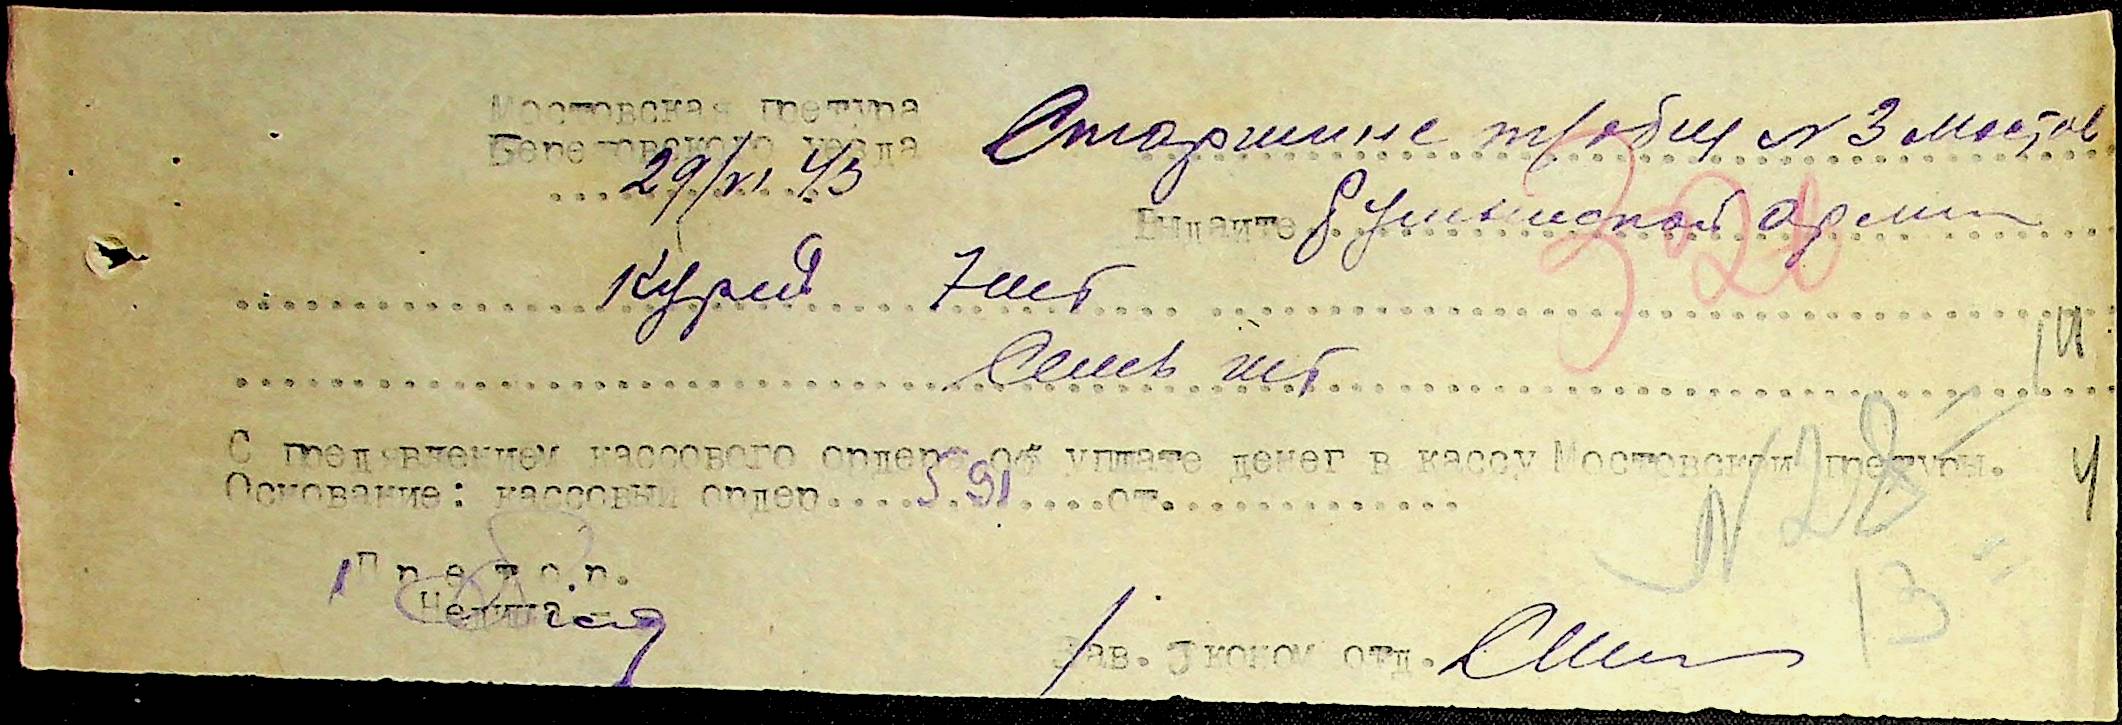 Мостовская претура
Березовского уезда
29/VI 43
Старшине т/общ N 3 Мостов
Выдайте Румынской армии
Курей 7 шт
Семь шт
3 20
С предявлением кассового ордера об уплате денег в кассу Мостовской претуры.
Основание: кассовый ордер....591....от..............
N 28
13
П р е т о р.
Зав. Эконом отд.